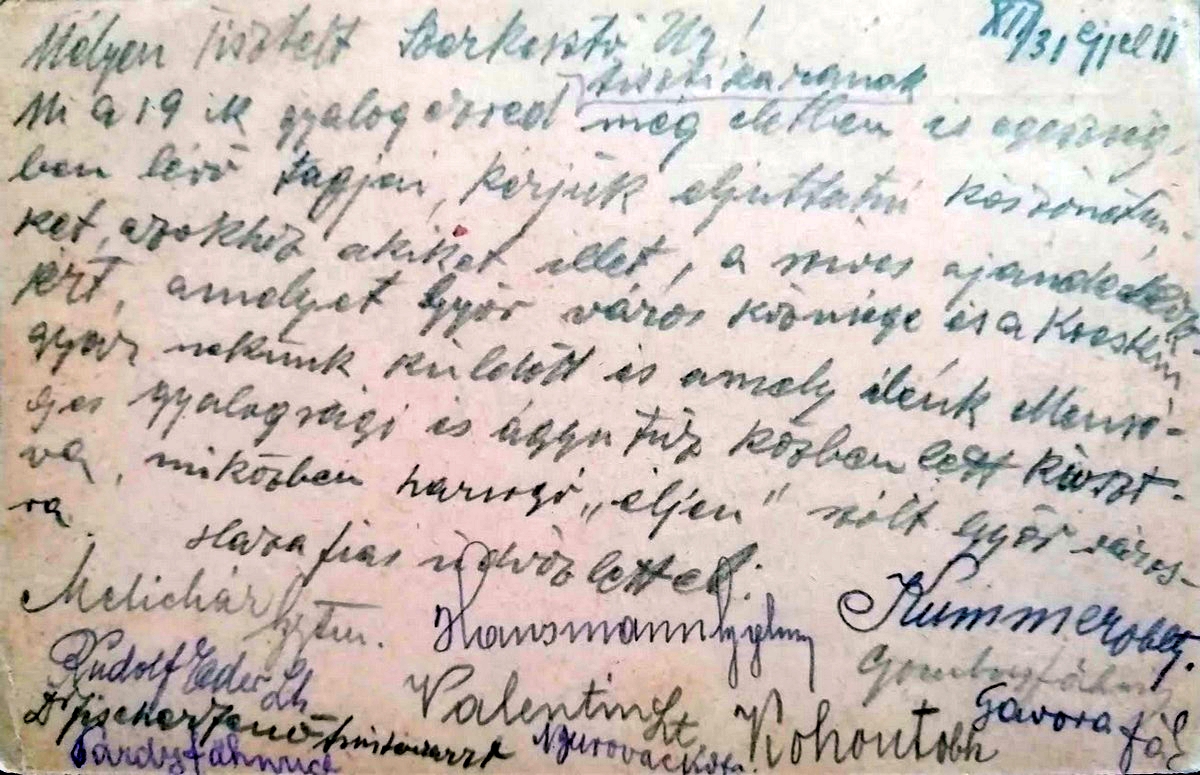 Mélyen Tisztelt Szerkesztő Úr! XII/31 éjjel 11
tisztikarának
Mi a 19 ik gyalog ezred még életben és egészség,
ben lévő tagjai, kérjük eljuttatni köszönetün-
ket, azokhoz akiket illet, a szives ajándékok-
ért, amelyet Győr város közönsége és a Koestlin
gyár nekünk küldött és amely élénk
éjes gyalogsági és ágyu tűz közben lett kioszt-
va, miközben harsogó „éljen" szólt Győr város-
ra.
Hazafias üdvözlettel:
Melichár Hausmann Kummer oblt.
Rudolf Eder Lt Gombos fähnr
Dr Fischer Jenő Valentin Lt Kohout oblt Gavora
Pardy fähnrich